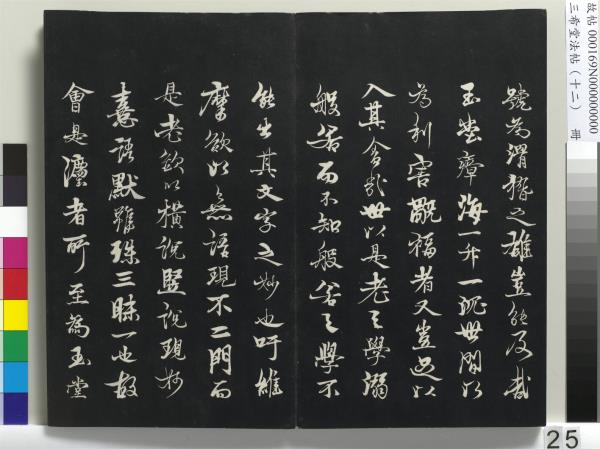 號為渭攏之雄豈能及哉
玉堂瘴海一升一沉世間以
為利害觀福者又豈足以
入其舍哉世以是老之學溺
般若而不知般若之學不
能出其文字之妙也吁維
摩欲以無語現不二門而
是老欲以橫說豎說現於
意語默雖殊三昧一也故
會是灋者所至為玉堂
故帖 000169N000000000
三希堂法帖(十二) 冊
25